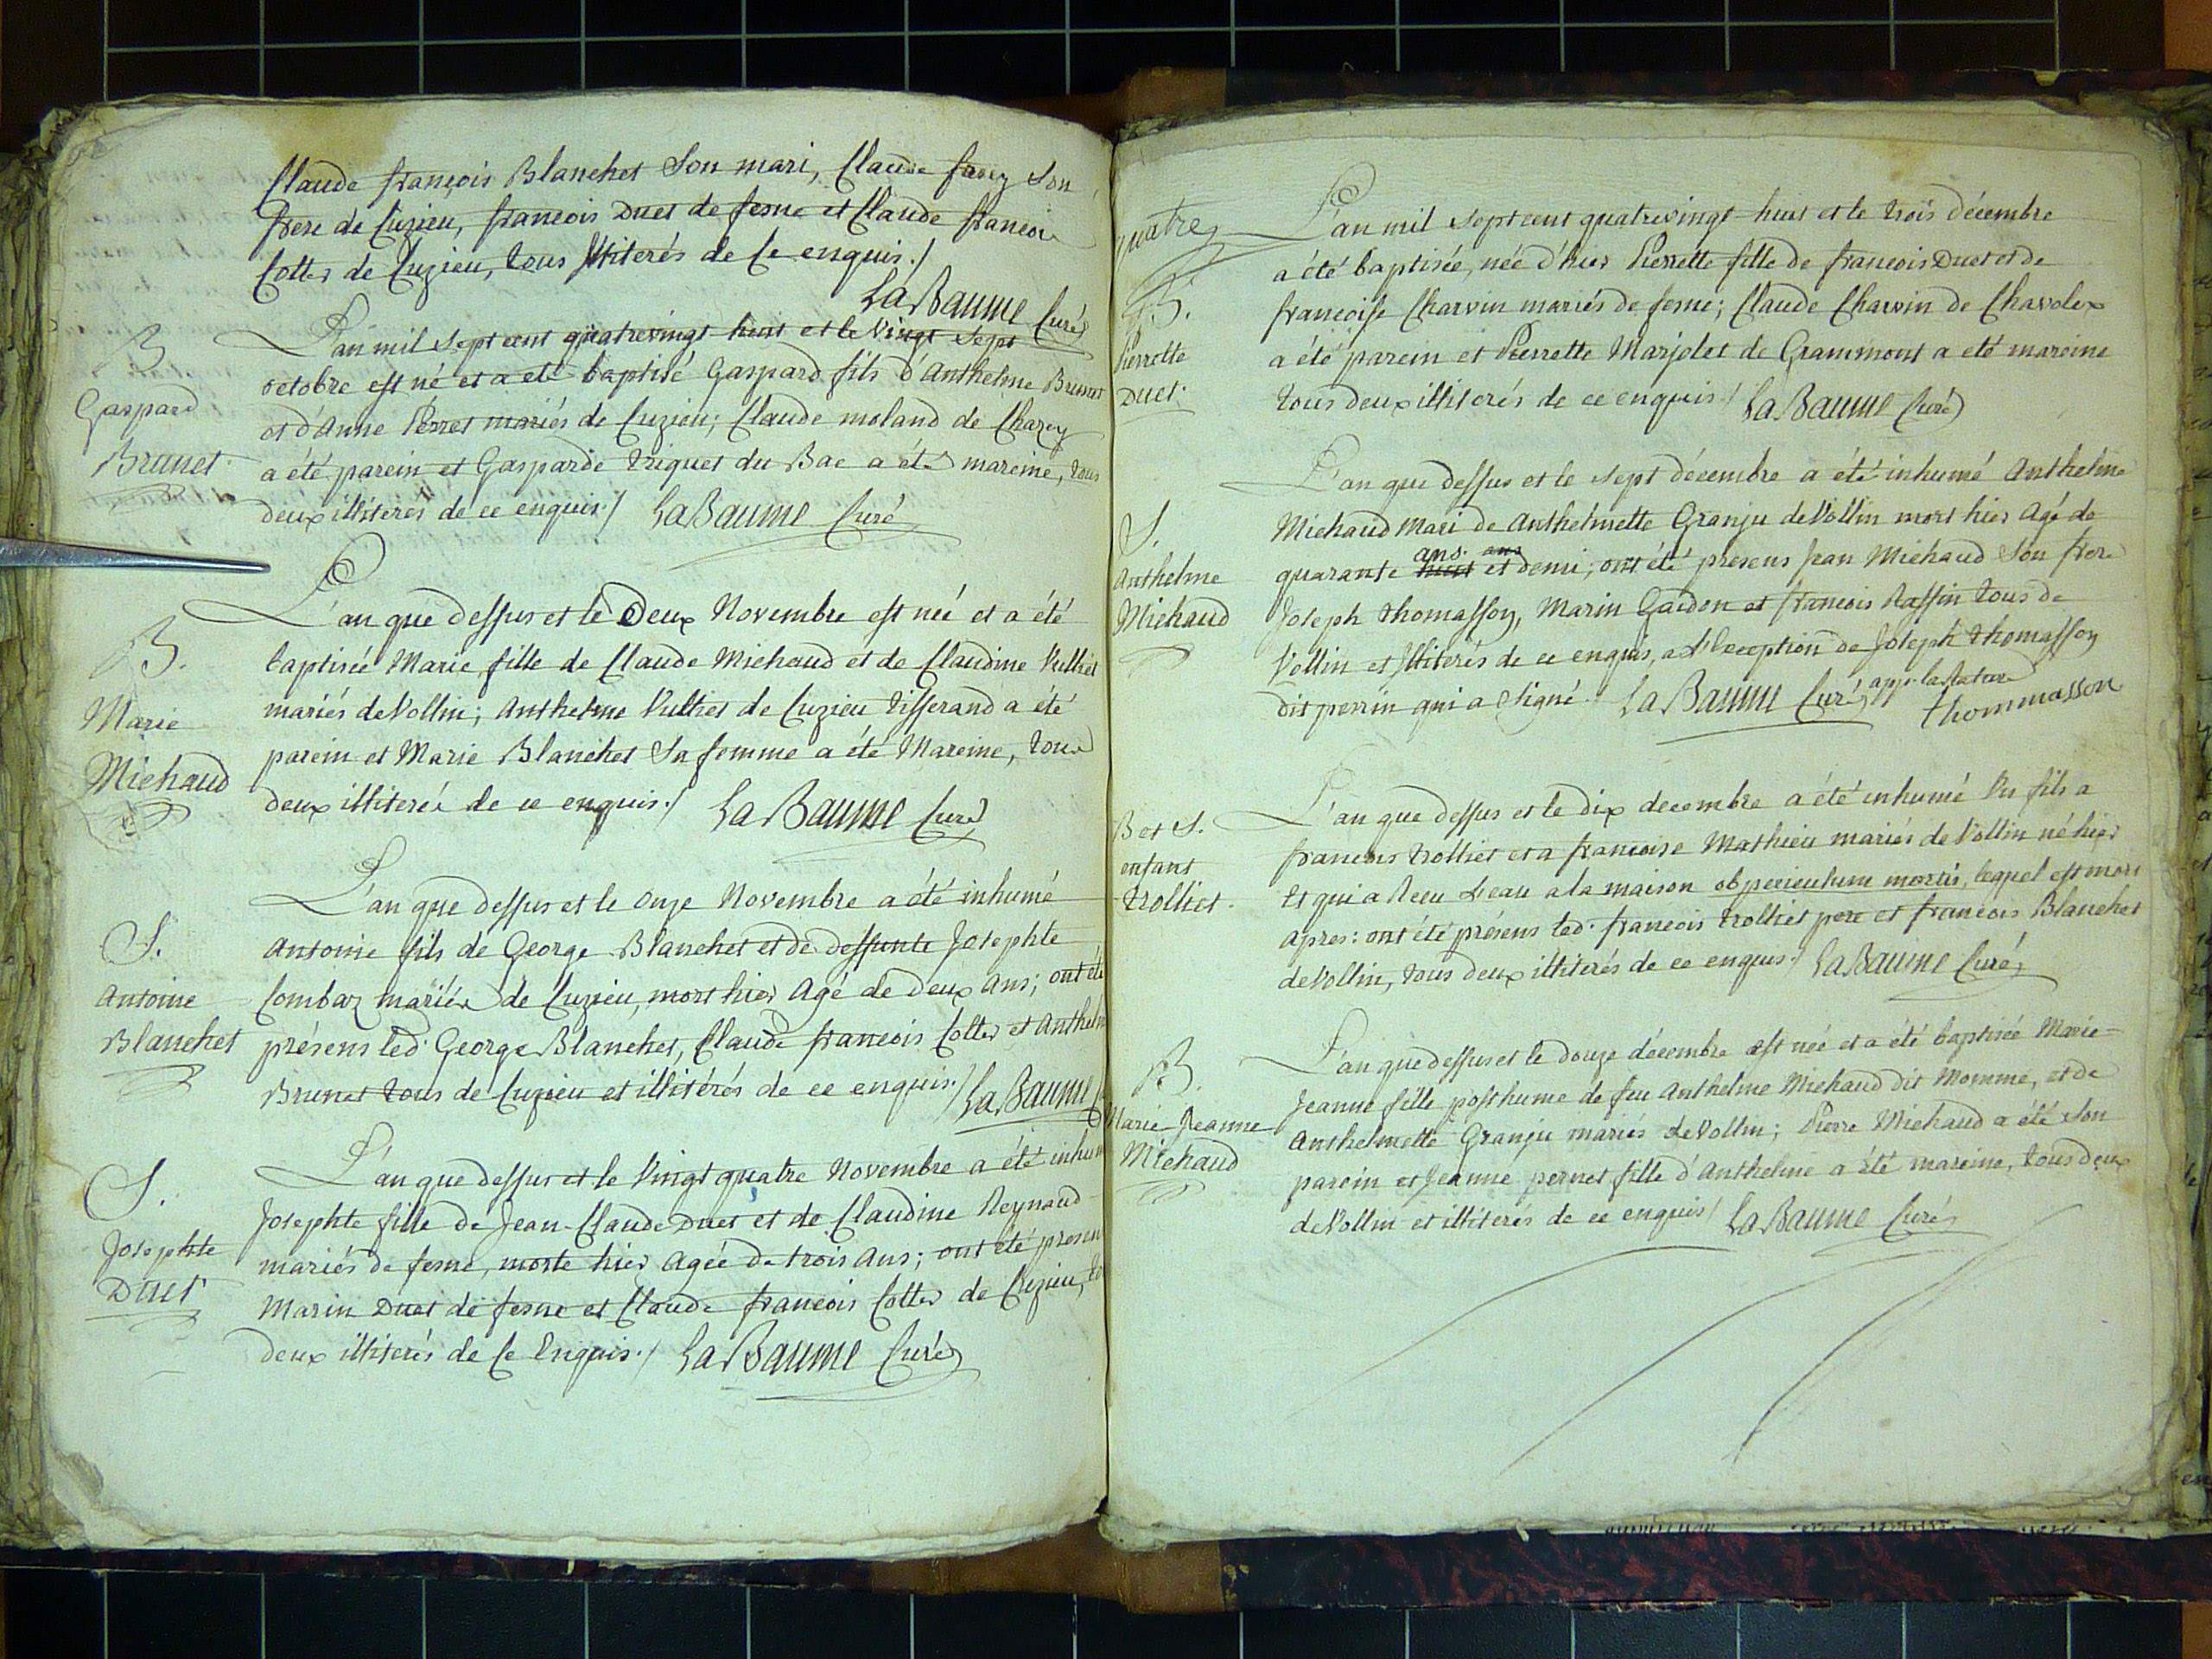 Claude françois Blanchet Son mari, Claude farcy Son
frere de Cuzieu, francois Duet de fesne et Claude francois
Cotter de Cuzieu, tous Illiterés de Ce enquis./
La Baume Curé
B
Gaspard
Brunet
L'an mil sept cent quatrevingt huit et le vingt sept
octobre est né et a eté baptisé Gaspard fils d'Anthelme Brunet
et d'Anne Perret mariés de Cuzieu; Claude moland de Charey
a été parein et Gasparde Triquet du Bac a été mareine, tous
deux illiterés de ce enquis./ La Baume Curé
B.
Marie
Michaud
L'an que dessus et le Deux Novembre est née et a été
baptisée Marie fille de Claude Michaud et de Claudine Vulliet
mariés de Vollin; Anthelme Vulliet de Cuzieu Tisserand a été
parein et Marie Blanchet Sa femme a été Mareine, tous
deux illiterés de ce enquis./ La Baume Curé
S.
Antoine
Blanchet
L'an que dessus et le onze Novembre a été inhumé
Antoine fils de George Blanchet et de deffunte Josephte
Combaz mariés de Cuzieu, mort hier Agé de Deux Ans; ont été
présens led. George Blanchet, Claude francois Cotter et Anthelm
Brunet tous de Cuzieu et illitérés de ce enquis./ La Baume
S.
Josephte
Duet
L'an que dessus et le Vingt quatre Novembre a été inhum
Josephte fille de Jean-Claude Duet et de Claudine Reynaud
mariés de fesne, morte hier Agée de trois Ans; ont été presen
Marin Duet de fesne et Claude francois Cotter de Cuzieu,
deux illiterés de Ce Enquis./ La Baume Curé
quatre
B.
Pierrette
Duet
L'an mil sept cent quatrevingt huit et le trois décembre
a été baptisée, née d'hier Pierrette fille de francois Duet et de
francoise Charvin mariés de fesne; Claude Charvin de Chavolex
a été parein et Pierrette Marjolet de Grammont a eté mareine
tous deux illiterés de ce enquis./ La Baume Curé
S.
Anthelme
Michaud
L'an que dessus et le sept décembre a été inhumé Anthelme
Michaud Mari de Anthelmette Granju de Vollin mort hier Agé de
ans. ans
quarante huit et demi; ont été presens Jean Michaud Son frere
Joseph Thomasson, Marin Gaidon et francois Rassin tous de
Vollin et Illiterés de ce enquis, a l'Exception de Joseph Thomasson
dit perrin qui a Signé./ La Baume Curé
thommasson
B et S.
enfant
Trolliet.
L'an que dessus et le dix decembre a été inhumé Un fils a
francois Trolliet et a francoise Mathieu mariés de Vollin né hier
Et qui a Recu L'eau a la maison ob periculum mortis, lequel est mort
apres: ont été présens led. francois Trolliet pere et francois Blanchet
de Vollin, tous deux illiterés de ce enquis./ La Baume Curé
B.
Marie-Jeanne
Michaud
L'an que dessus et le douze décembre est née et a été baptisée Marie-
Jeanne fille posthume de feu Anthelme Michaud dit Momme, et de
Anthelmette Granju mariés de Vollin; Pierre Michaud a été Son
parein et Jeanne pernet fille d'Anthelme a été mareine, tous deux
de Vollin et illiterés de ce enquis/ La Baume Curé